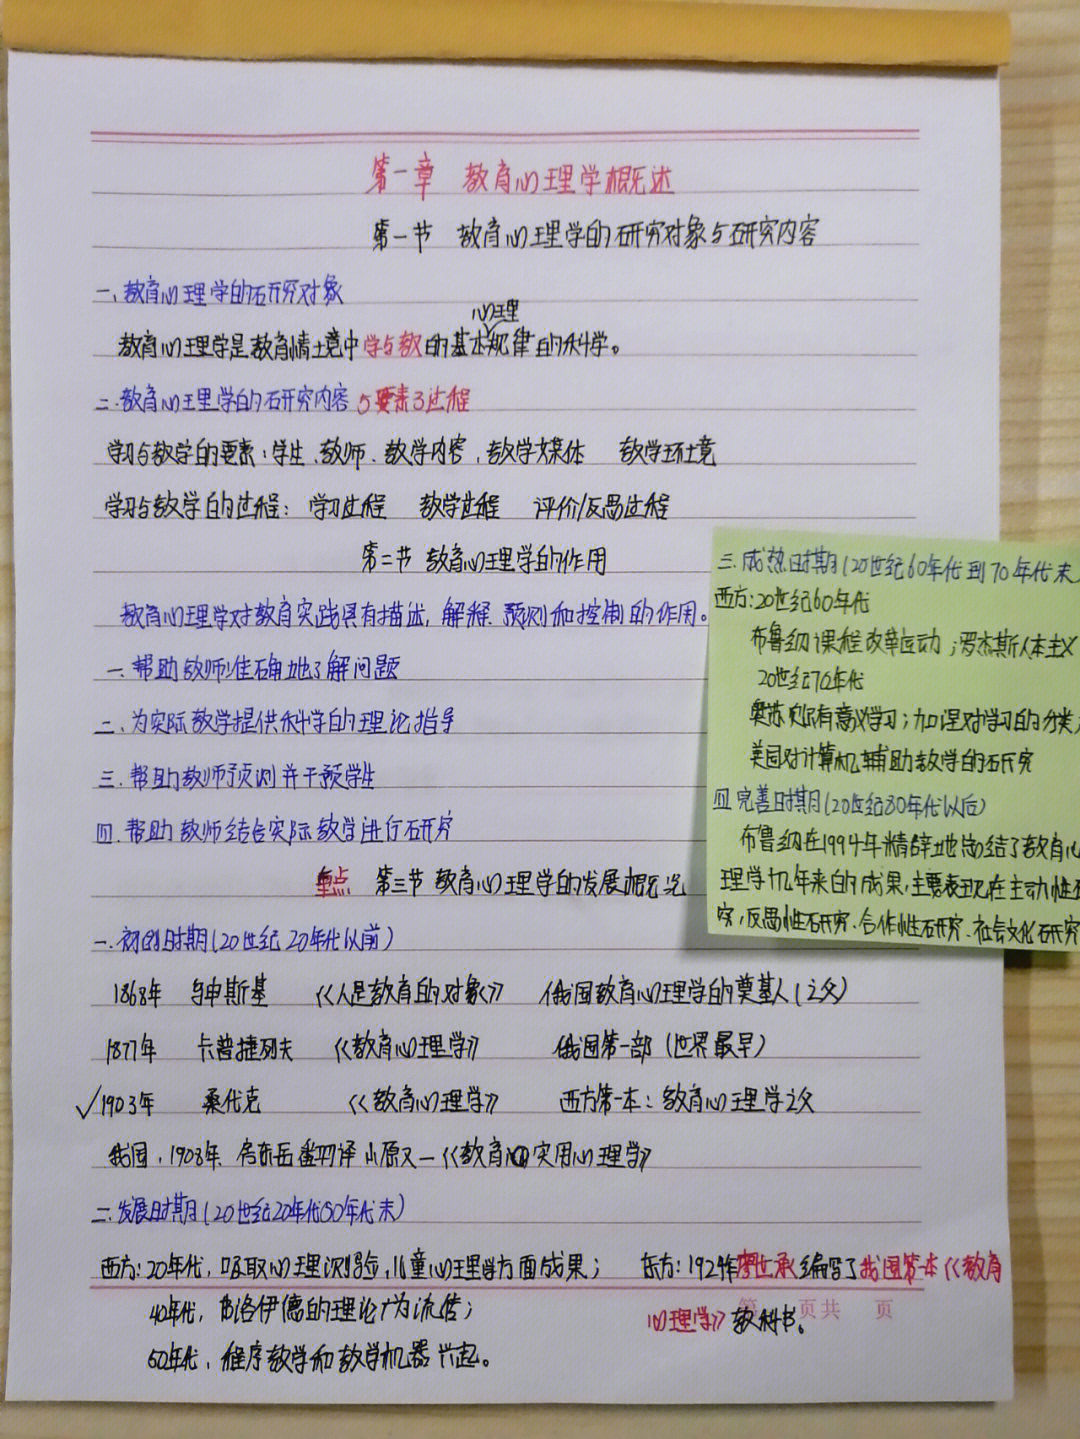 第一章 教育心理学概述
第一节 教育心理学的研究对象与研究内容
一、教育心理学的研究对象
心理
教育心理学是教育情境中学与教的基本规律的科学。
二.教育心理学的研究内容 5要素3过程
学习与教学的要素:学生、教师、教学内容、教学媒体 教学环境
学习与教学的过程: 学习过程 教学过程 评价/反思过程
第二节 教育心理学的作用
教育心理学对教育实践具有描述,解释、预测和控制的作用。
一.帮助教师准确地了解问题
二、为实际教学提供科学的理论指导
三.帮助教师预测并干预学生
四.帮助教师结合实际教学进行研究
重点 第三节 教育心理学的发展概况
一.初创时期(20世纪20年代以前)
1868年 乌申斯基 《人是教育的对象》 俄国教育心理学的奠基人(之父)
1877年 卡普捷列夫 《教育心理学》 俄国第一部(世界最早)
✓1903年 桑代克 《教育心理学》 西方第一本:教育心理学之父
我国,1908年 房东岳翻译小原又一《教育实用心理学》
二.发展时期(20世纪20年代50年代末)
西方:20年代,吸取心理测验,儿童心理学方面成果; 东方:1924年廖世承编写了我国第一本《教育
40年代,弗洛伊德的理论广为流传; 心理学》教科书。
50年代,程序教学和教学机器兴起。
第 页共 页
三.成熟时期(20世纪60年代到70年代末
西方:20世纪60年代
布鲁纳课程改革运动;罗杰斯人本主义
20世纪70年代
奥苏贝尔有意义学习;加涅对学习的分类
美国对计算机辅助教学的研究
四 完善时期(20世纪80年代以后)
布鲁纳在1994年精辟地总结了教育心
理学十几年来的成果,主要表现在主动性研
究,反思性研究、合作性研究、社会文化研究